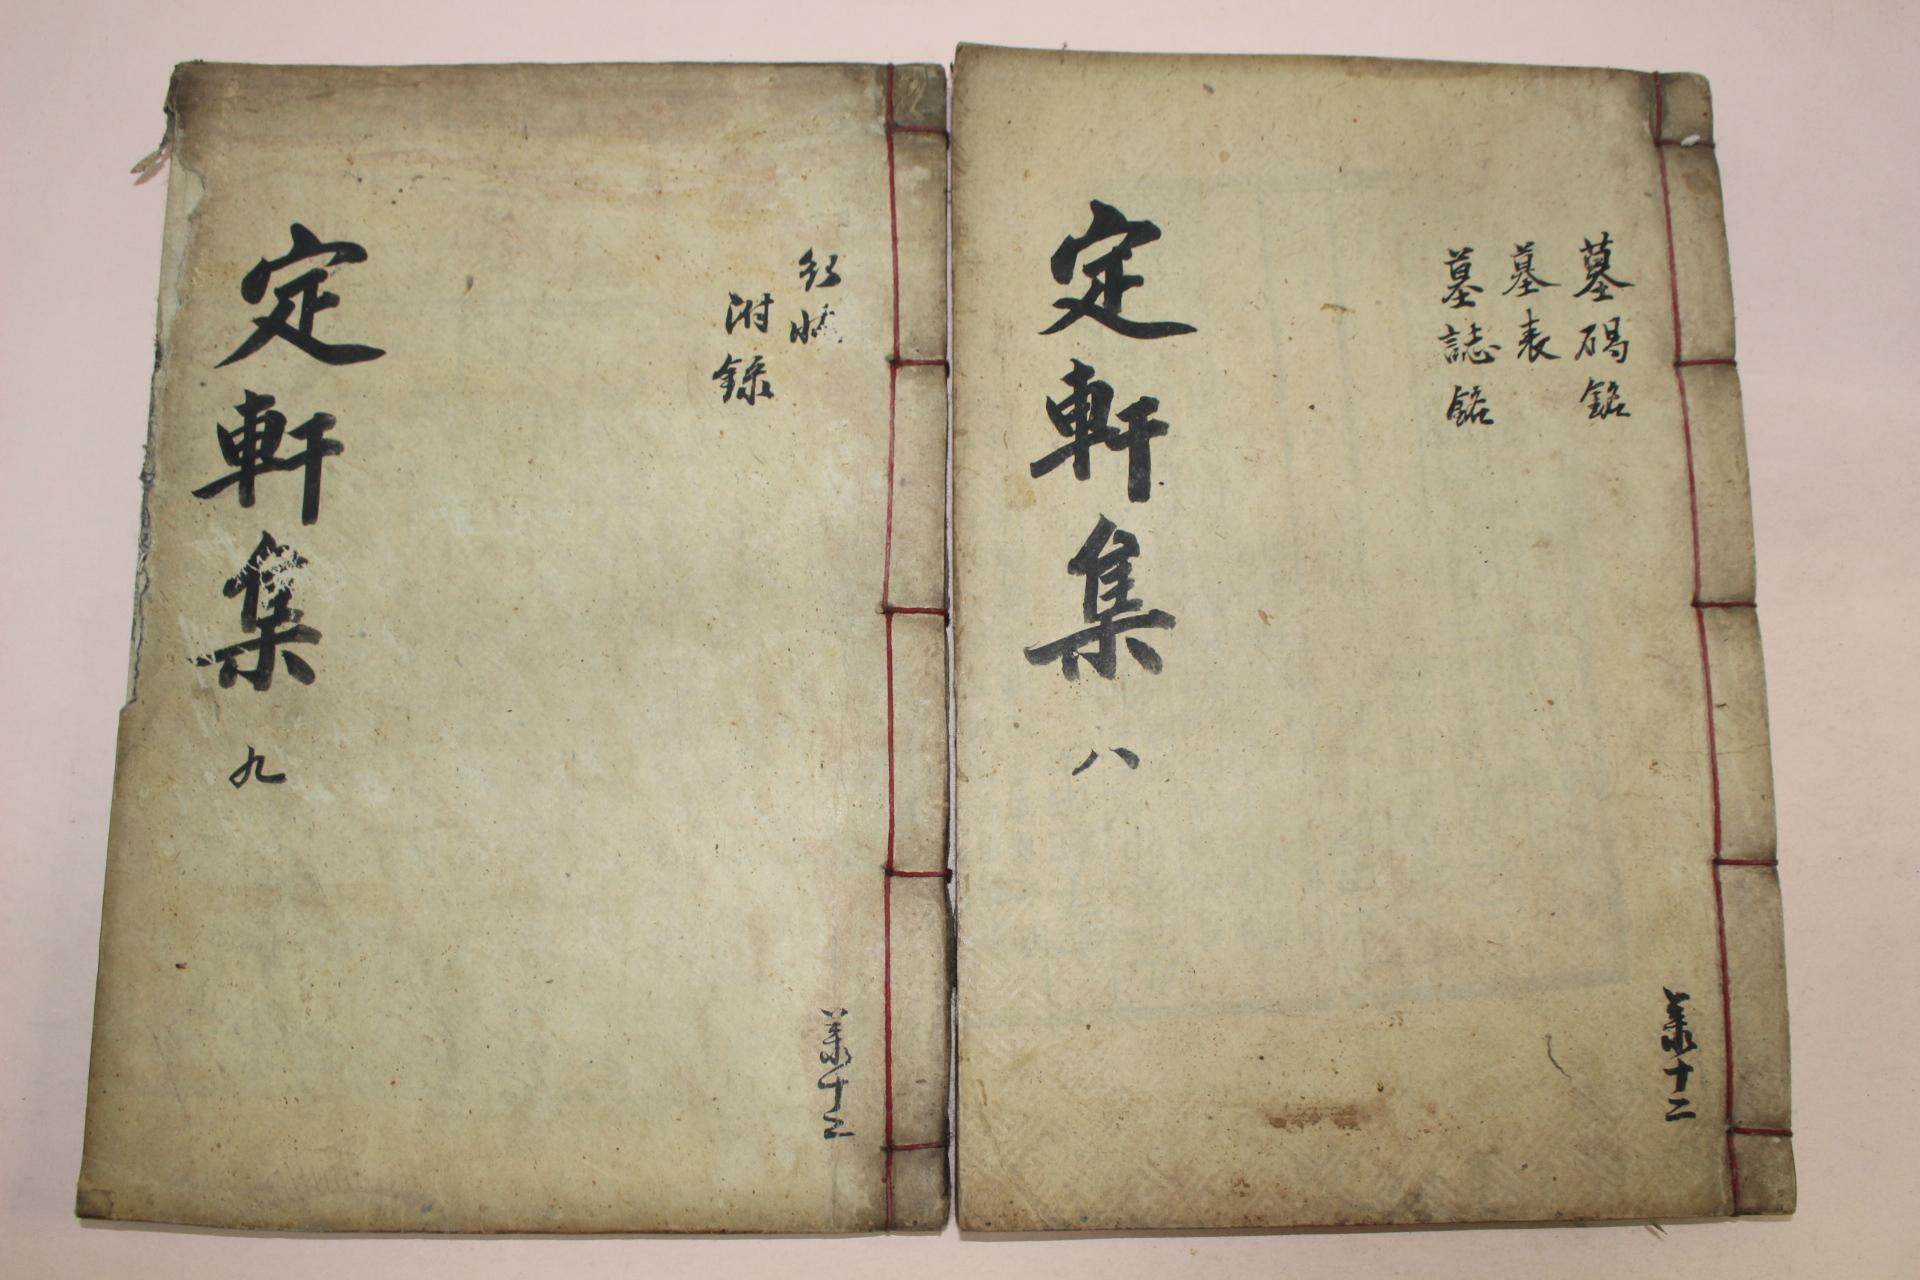 墓碣銘
墓表
墓誌銘
定軒集 八
共十二
行狀
附錄
定軒集 九
共十二